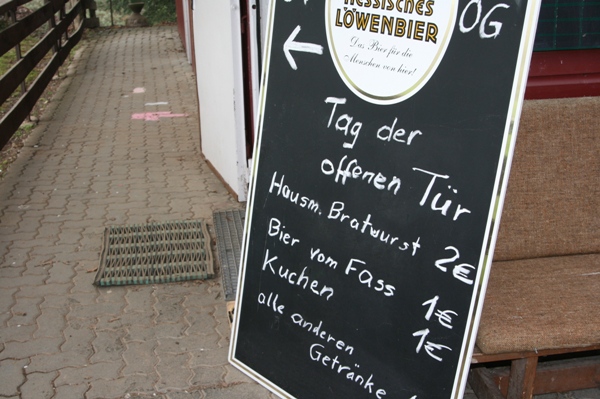 HESSISCHES
LÖWENBIER
Das Bier für die
Menschen von hier!
OG
Tag der
offenen Tür
Hausm. Bratwurst 2€
Bier vom Fass 1€
Kuchen 1€
alle anderen
Getränke